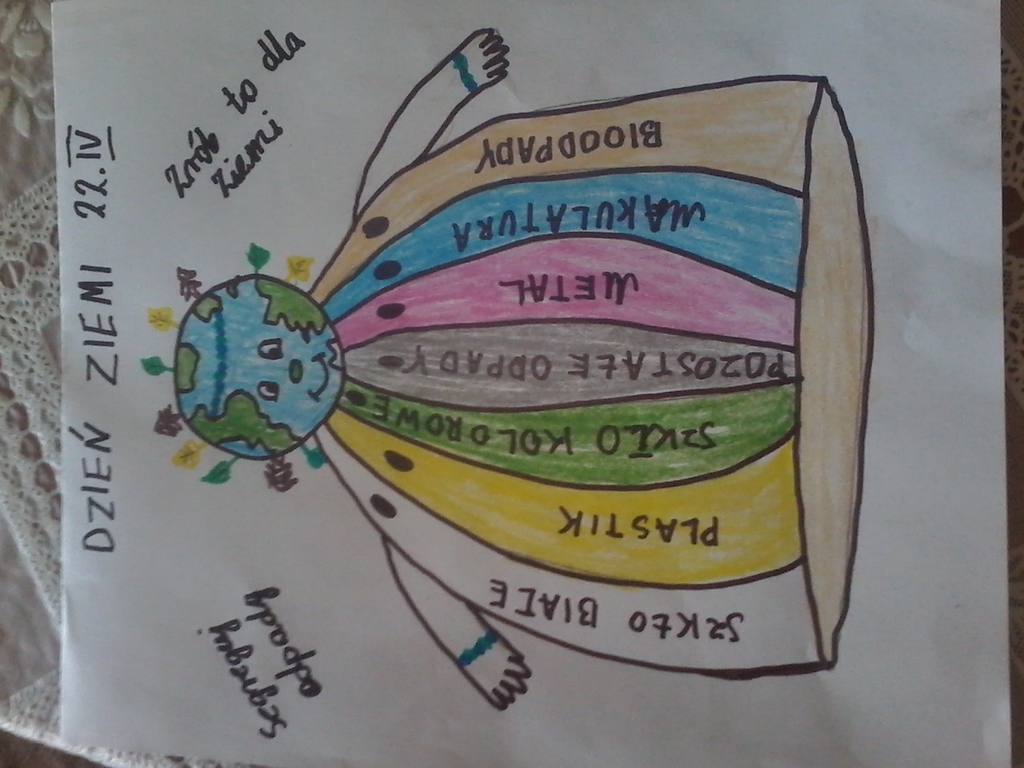 DZIEŃ ZIEMI 22.IV
Segreguj
odpady
Zrób to dla
Ziemi
SZKŁO BIAŁE
PLASTIK
SZKŁO KOLOROWE
POZOSTAŁE ODPADY
METAL
MAKULATURA
BIOODPADY